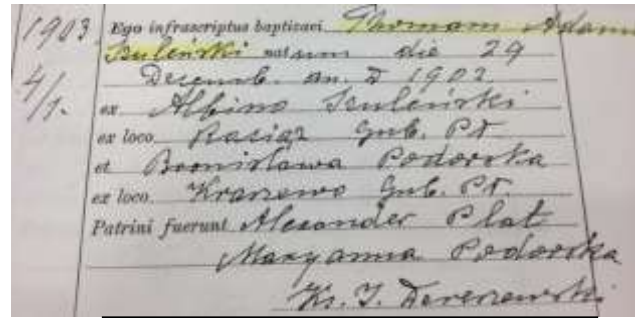 1903 Ego infrascriptus baptisavi Thomam Adam
Szuleński natum die 29
4/1. Decemb. an. D 1902
ex Albino Szuleński
ex loco Raciąż Gub. Pł
et Bronisława Podorska
ex loco Kraszewo Gub. Pł.
Patrini fuerunt Alexander Plat
Maryanna Podorska
Ks. J.